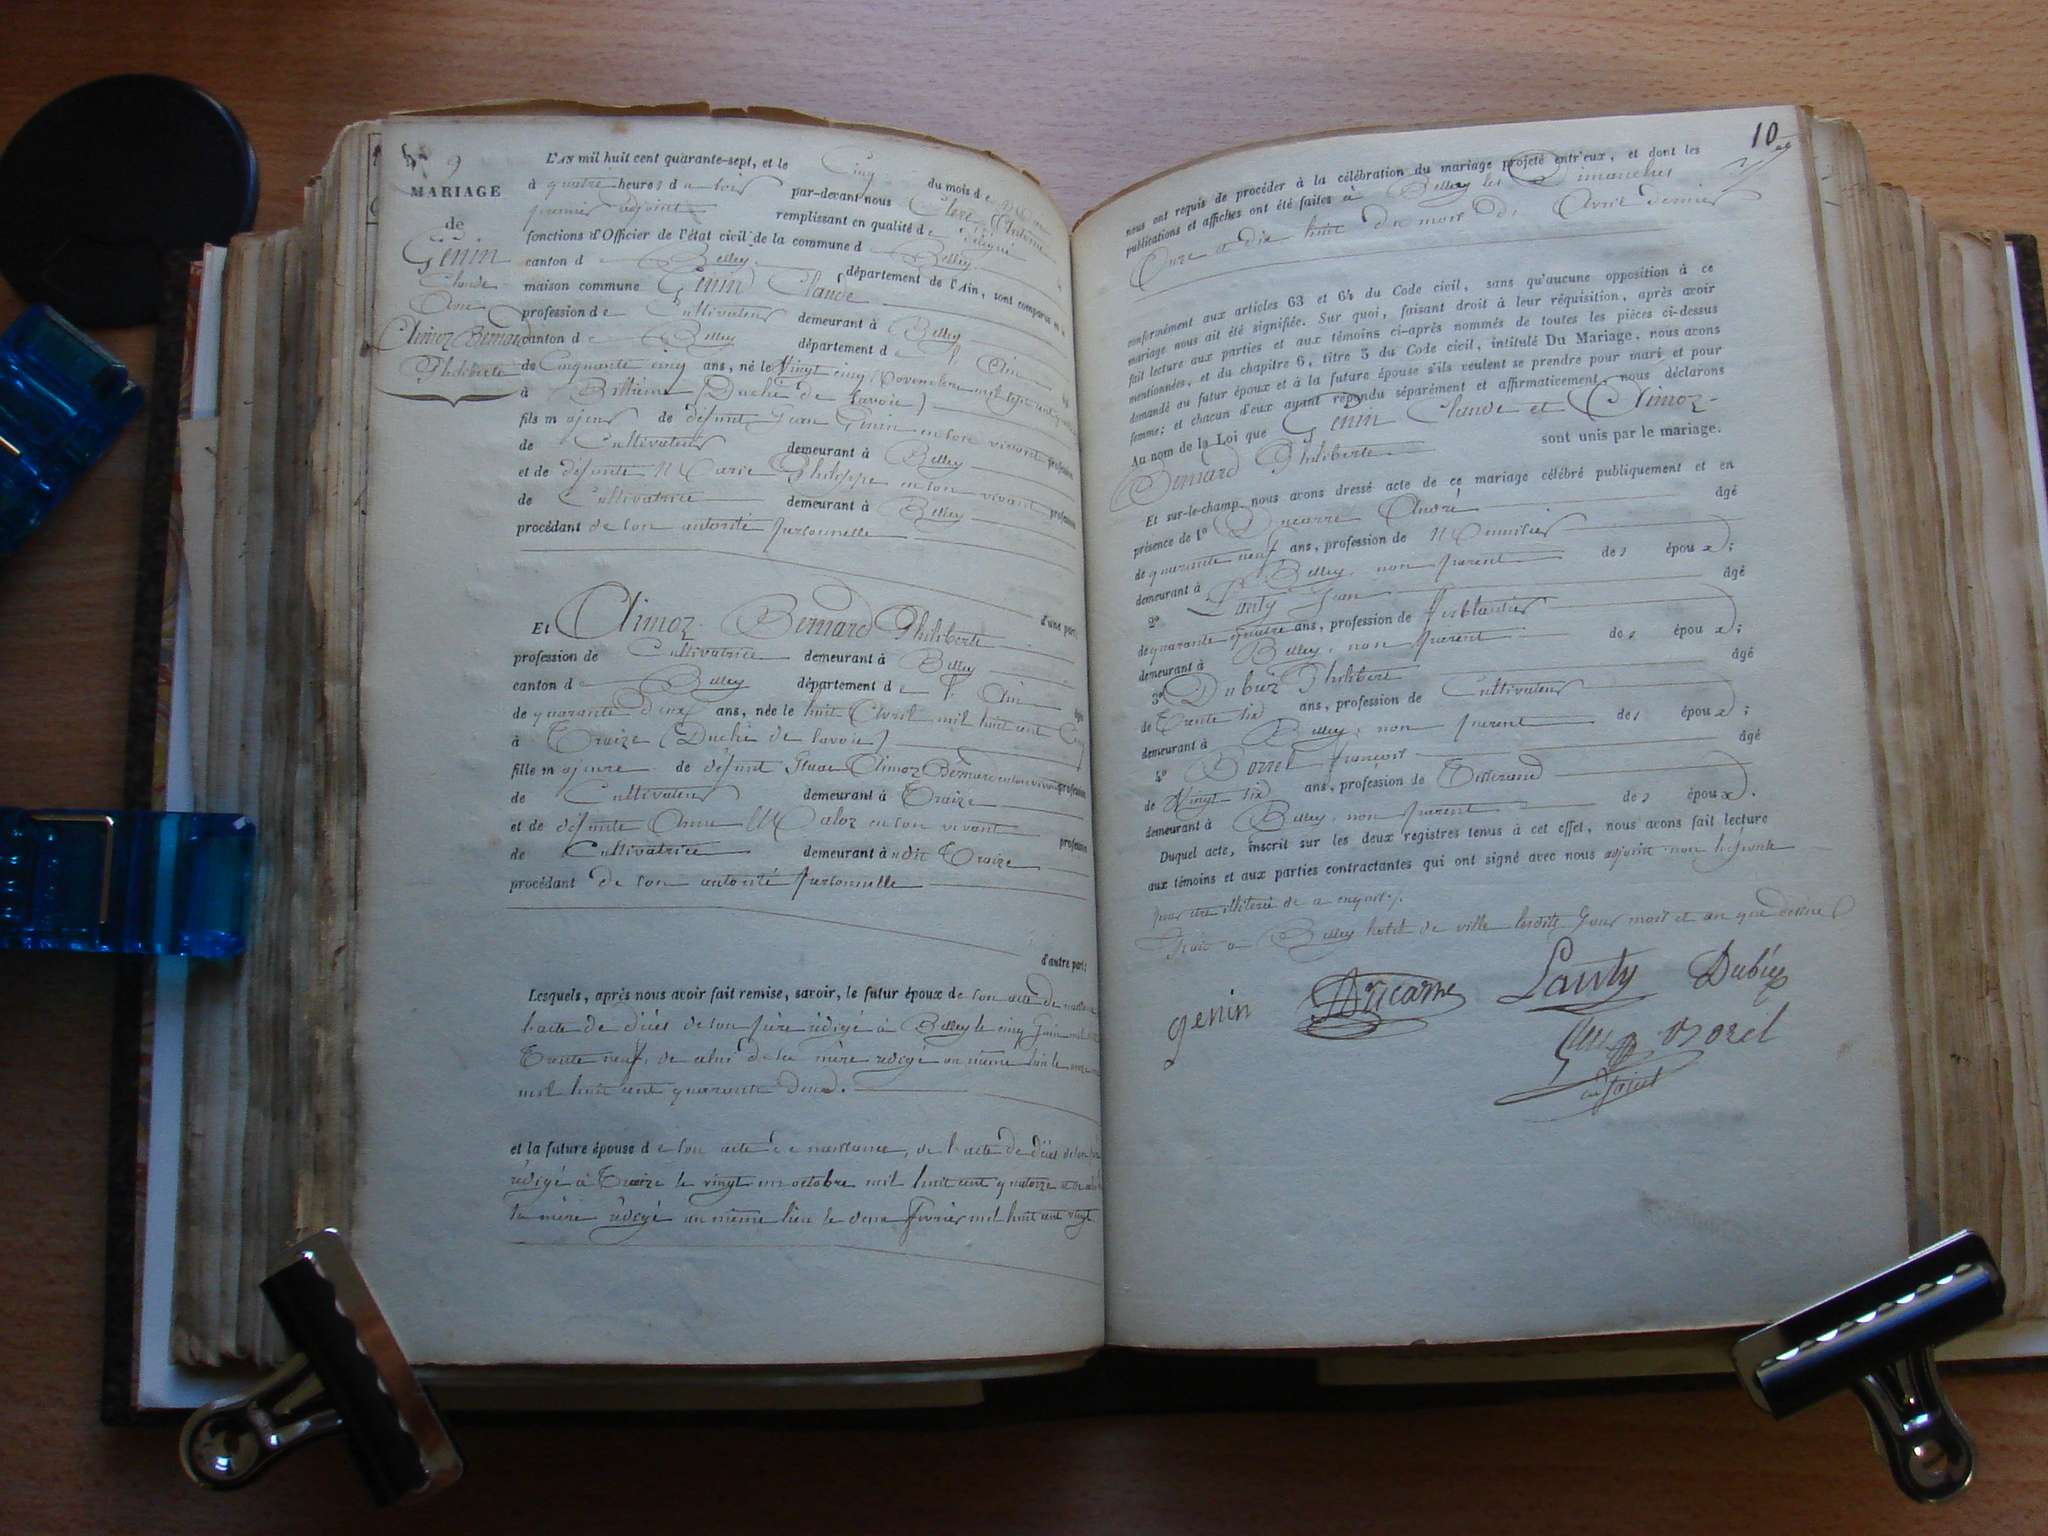 N° 9
MARIAGE
de
Genin
Claude
Avec
Climoz Bernard
Philiberte
L'AN mil huit cent quarante-sept, et le Cinq du mois de
à quatre heures du soir par-devant nous Clerc Antoine
premier adjoint remplissant en qualité de délégué
fonctions d'Officier de l'état civil de la commune d Belley
canton d Belley département de l'Ain, sont comparus
maison commune Genin Claude
profession de Cultivateur demeurant à Belley
canton de Belley département de l' Ain
de Cinquante cinq ans, né le Vingt cinq Novembre mil sept cent
à Billième (Duché de Savoie)
fils majeur de défunt Jean Genin en son vivant profession
de Cultivateur demeurant à Belley
et de défunte Marie Philippe en son vivant profession
de Cultivatrice demeurant à Belley
procédant de son autorité personnelle
d'une part;
Et Climoz Bernard Philiberte
profession de Cultivatrice demeurant à Belley
canton de Belley département de l' Ain
de quarante deux ans, née le huit Avril mil huit cent Cinq
à Traize (Duché de Savoie)
fille majeure de défunt Climoz Bernard en son vivant profession
de Cultivateur demeurant à Traize
et de défunte Anne Maloz en son vivant profession
de Cultivatrice demeurant audit Traize
procédant de son autorité personnelle
d'autre part;
Lesquels, après nous avoir fait remise, savoir, le futur époux de son acte de naissance
l'acte de décès de son père rédigé à Belley le cinq Juin mil
Trente neuf, de celui de sa mère rédigé au même lieu le onze
mil huit cent quarante deux.
et la future épouse de son acte de naissance, de l'acte de décès de son père
rédigé à Traize le vingt un octobre mil huit cent quatorze et de celui
sa mère rédigé au même lieu le deux Février mil huit cent vingt
10
nous ont requis de procéder à la célébration du mariage projeté entr'eux, et dont les
publications et affiches ont été faites à Belley les Dimanches
Onze et dix huit du mois d' Avril dernier
conformément aux articles 63 et 64 du Code civil, sans qu'aucune opposition à ce
mariage nous ait été signifiée. Sur quoi, faisant droit à leur réquisition, après avoir
fait lecture aux parties et aux témoins ci-après nommés de toutes les pièces ci-dessus
mentionnées, et du chapitre 6, titre 5 du Code civil, intitulé Du Mariage, nous avons
demandé au futur époux et à la future épouse s'ils veulent se prendre pour mari et pour
femme; et chacun d'eux ayant répondu séparément et affirmativement, nous déclarons
Au nom de la Loi que Genin Claude et Climoz-
Bernard Philiberte sont unis par le mariage.
Et sur-le-champ nous avons dressé acte de ce mariage célébré publiquement et en
présence de 1° Ducarre André âgé
de quarante neuf ans, profession de Menuisier
demeurant à Belley, non parent des époux;
2° Lanty Jean âgé
de quarante quatre ans, profession de ferblantier
demeurant à Belley, non parent des époux;
3° Dubiez Philibert âgé
de Trente six ans, profession de Cultivateur
demeurant à Belley, non parent des époux;
4° Borrel François âgé
de Vingt six ans, profession de Tisserand
demeurant à Belley, non parent des époux.
Duquel acte, inscrit sur les deux registres tenus à cet effet, nous avons fait lecture
aux témoins et aux parties contractantes qui ont signé avec nous adjoint non l'épouse
pour être illitérée de ce enquise.
Fait à Belley hotel de ville lesdits Jour mois et an que dessus
genin Ducarre Lanty Dubiez
Borel
adjoint